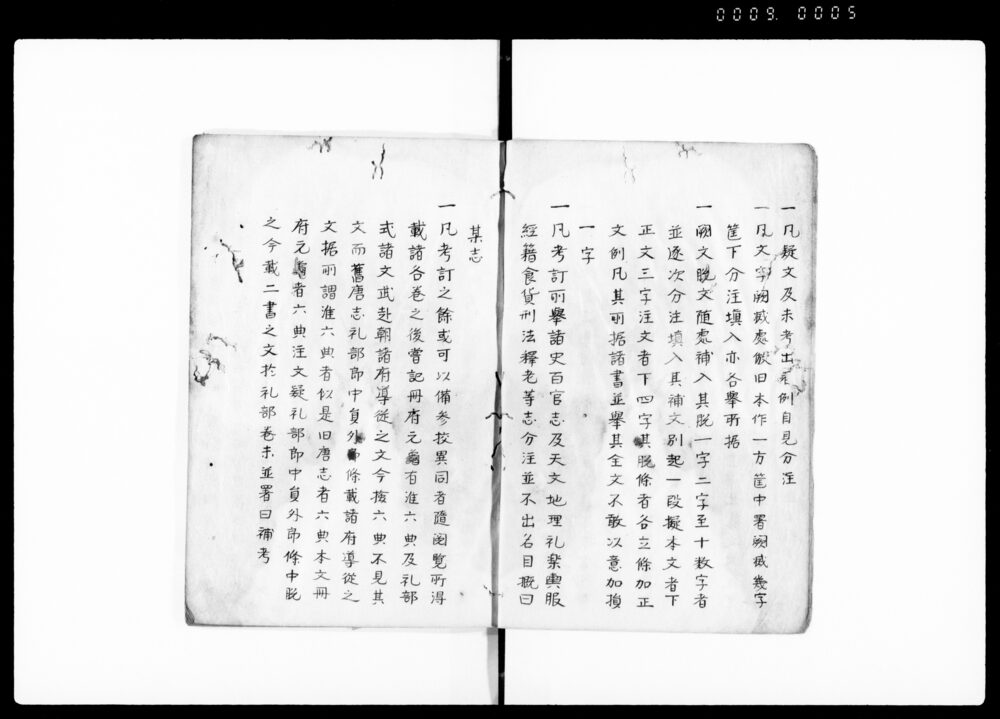 0009. 0005
一凡疑文及未考出者例自見分注
一凡文字闕滅處倣旧本作一方筐中署闕滅幾字
筐下分注填入亦各舉所据
一闕文脱文随處補入其脱一字二字至十数字者
並逐次分注填入其補文別起一段擬本文者下
正文三字注文者下四字其脱條者各立條加正
文例凡其所据諸書並舉其全文不敢以意加損
一字
一凡考訂所舉諸史百官志及天文地理礼楽輿服
經籍食貨刑法釋老等志分注並不出名目概曰
某志
一凡考訂之餘或可以備参挍異同者隨閲覧所得
載諸各卷之後嘗記冊府元龜有准六典及礼部
式諸文武赴朝諸府導從之文今按六典不見其
文而舊唐志礼部郎中員外郎條載諸府導從之
文据所謂准六典者似是旧唐志者六典本文冊
府元龜者六典注文疑礼部郎中員外郎條中脱
之今載二書之文於礼部卷末並署曰補考